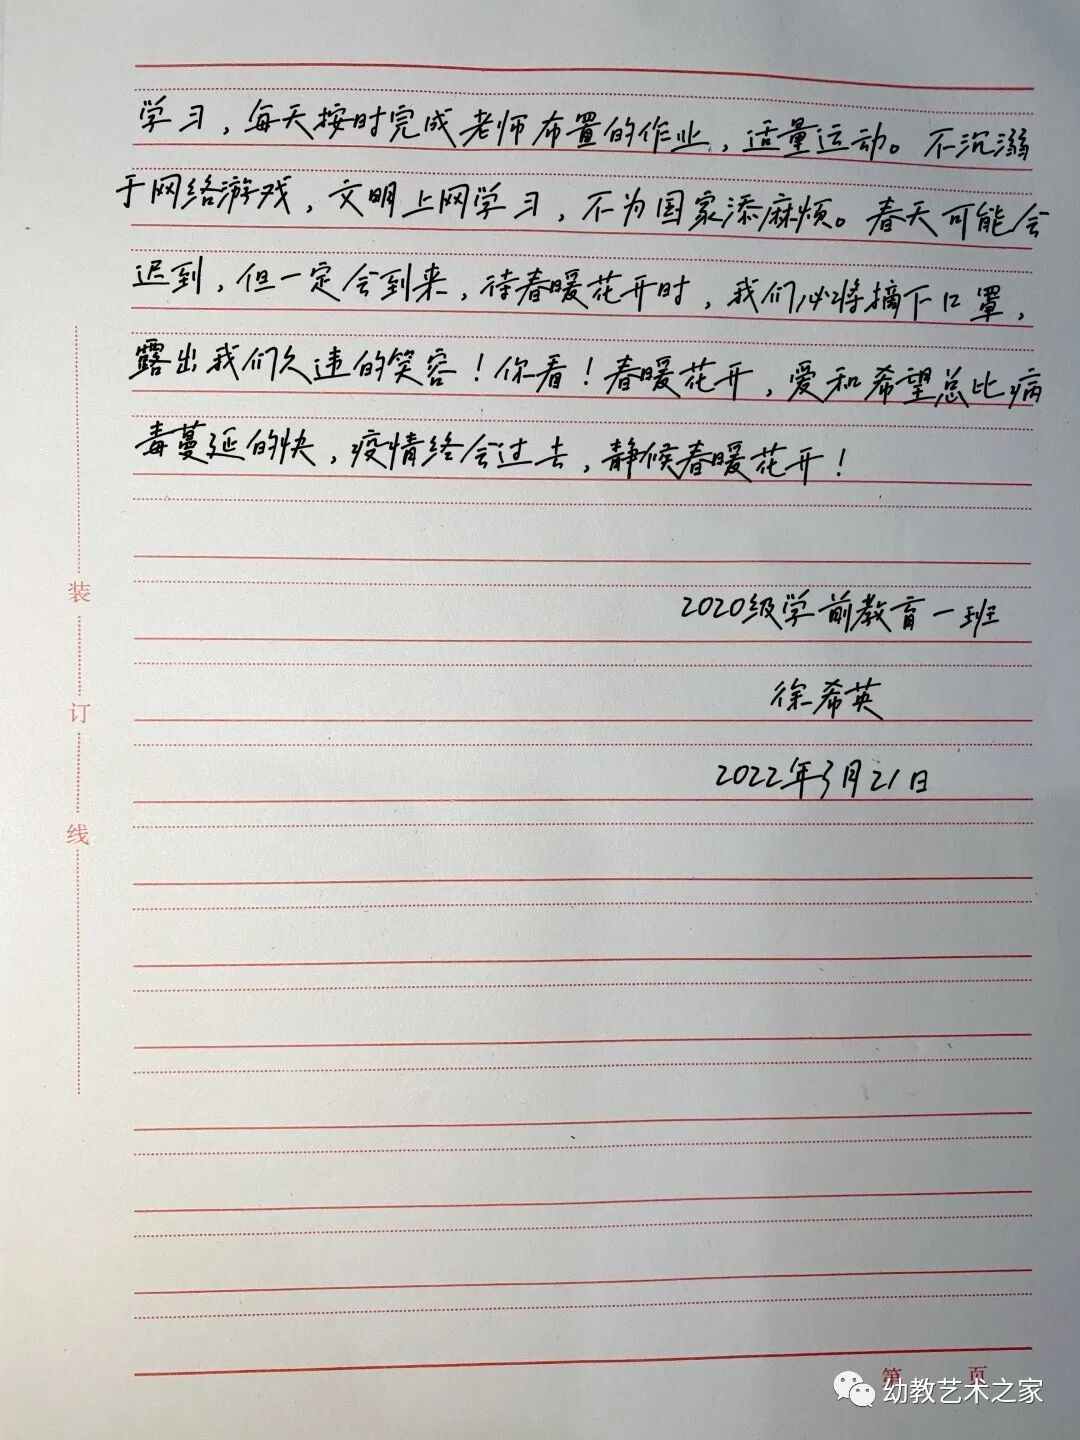 学习，每天按时完成老师布置的作业，适量运动。不沉溺
于网络游戏，文明上网学习，不为国家添麻烦。春天可能会
迟到，但一定会到来，待春暖花开时，我们必将摘下口罩，
露出我们久违的笑容！你看！春暖花开，爱和希望总比病
毒蔓延的快，疫情终会过去，静候春暖花开！
2020级学前教育一班
徐希英
2022年3月21日
装
订
线
第 页
幼教艺术之家